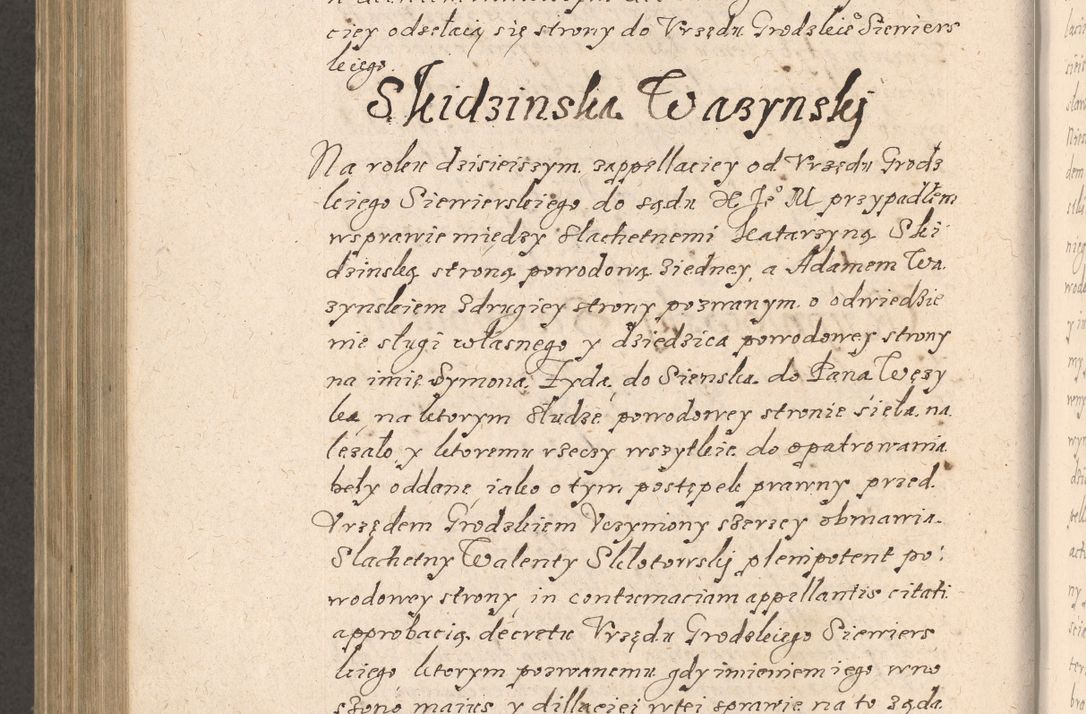 ciey odsełaią się strony do Vrzędu Grodzkie° Siewiers
kiego.
Skidzinska Wazynskj
Na roku dzisieiszym zappellaciey od Vrzędu Grodz
kiego Siewierskiego do sądu JE Je° M przypadłem
wsprawie między Slachetnemi Katarzyną Ski
dzinską stroną powodową ziedney, a Adamem Wa
zynskiem zdrugiey strony pozwanym o odwiedzie
nie sługi własnego y dziedzica powodowey strony
na imię Symona Zyda, do Sienska do Pana Węzy
ka, na ktorym słudze powodowey stronie siela na
lezało y ktoremu rzeczy wszytkie do opatrowania
beły oddane, iako o tym postępek prawny przed
Vrzędem Grodzkiem Vczyniony szerzey obmawia
Slachetny Walenty Skłotowskj plenipotent po
wodowey strony, in contumaciam appellantis citati
approbacią decretu Vrzędu Grodzkiego Siewiers
kiego ktorym pozwanemu gdy imieniem iego wno
szono maius y dillaciei wtei sprawie na to ząda